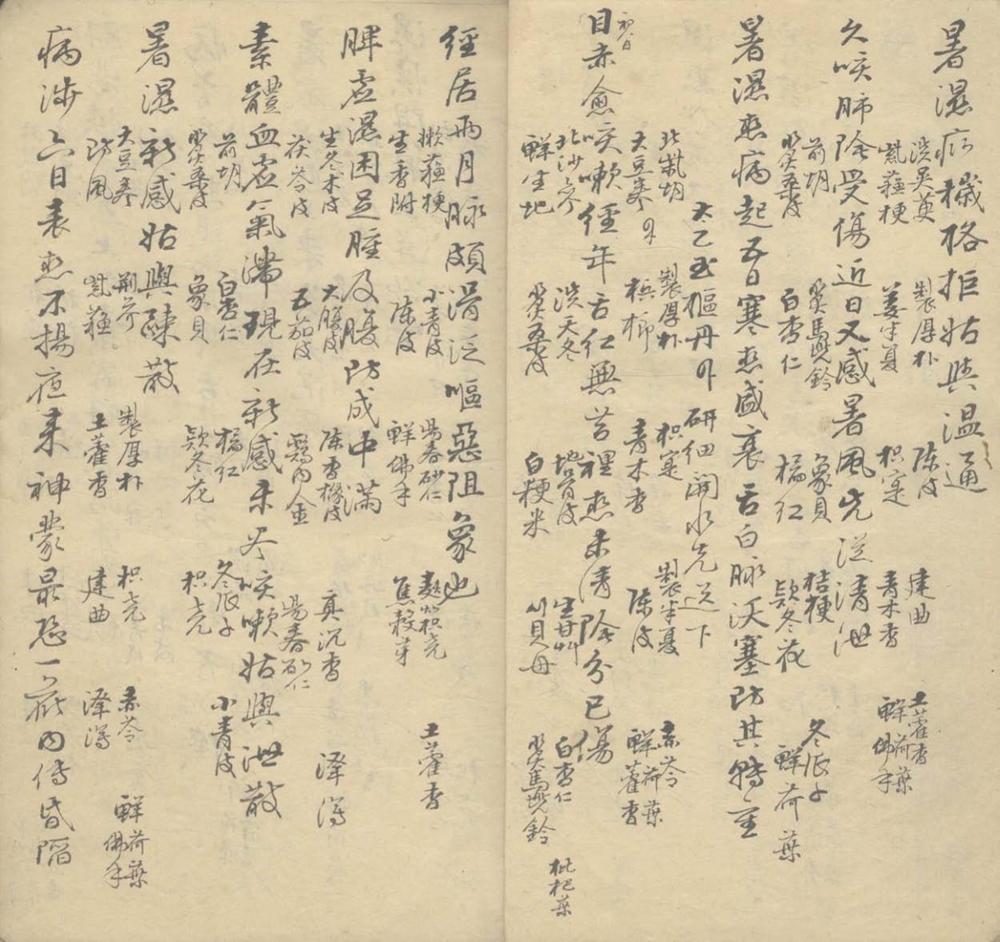 暑濕痧穢格拒姑與温通
淡吳萸 製厚朴 陳皮 建曲 土藿香 鮮荷葉
紫蘇梗 姜半夏 枳寔 青木香 鮮佛手
久咳肺陰受傷近日又感暑風先從清泄
前胡 炙馬兜鈴 象貝 桔梗 冬瓜子
炙桑皮 白杏仁 橘紅 款冬花 鮮荷葉
暑濕熱病起五日寒熱盛衰舌白脉沃塞防其轉重
太乙玉樞丹 研細開水先送下
北柴胡 製厚朴 枳寔 製半夏 赤苓 鮮荷葉
大豆卷 檳榔 青木香 陳皮 鮮藿香
目赤愈咳嗽經年舌仁無苔裡熱未清陰分已傷
北沙參 淡天冬 地骨皮 生甘艸 白杏仁 枇杷葉
鮮生地 炙桑皮 白粳米 川貝母 炙馬兜鈴
經居兩月脉頗滑泛嘔惡阻象也
嫩蘇梗 小青皮 陽春砂仁 麩炒枳壳 土藿香
生香附 陳皮 鮮佛手 焦穀芽
脾虛濕困足腫及腹防成中滿
生冬术皮 大腹皮 陳香櫞皮 真沉香 澤瀉
茯苓皮 五茄皮 雞內金 陽春砂仁
素體血虛氣滯現在新感未尽咳嗽姑與泄散
前胡 白杏仁 橘紅 冬瓜子 小青皮
炙桑皮 象貝 款冬花 枳壳
暑濕新感姑與疎散
大豆卷 荊芥 製厚朴 枳壳 赤苓 鮮荷葉
防風 紫蘇 土藿香 建曲 澤瀉 鮮佛手
病涉六日表熱不揚疸未神蒙最恐一㾾内傳昏陷